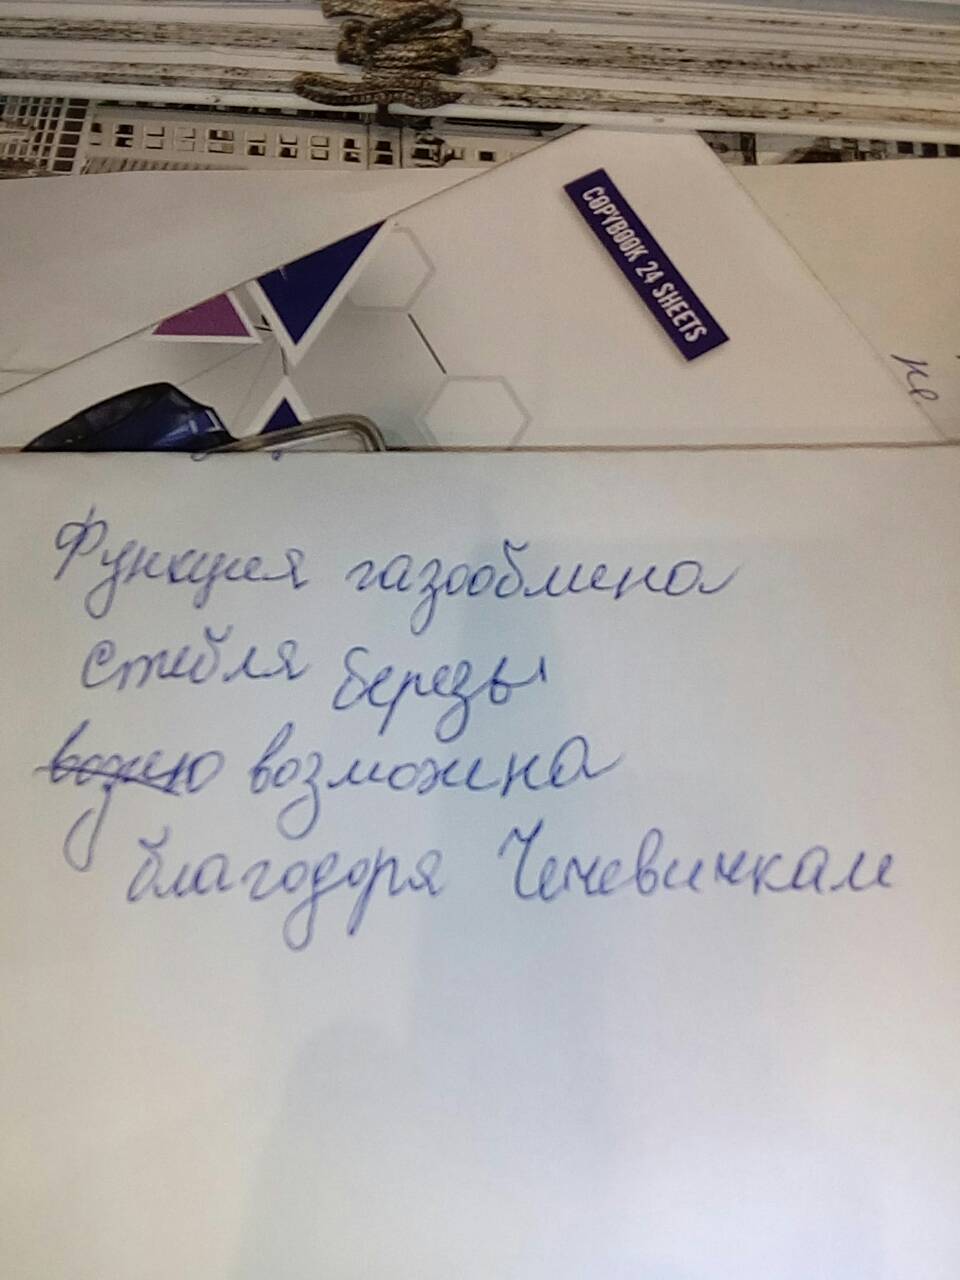 COPYBOOK 24 SHEETS
не
Функция газообмена
стебля березы
возможна
благодоря Чечевичкам